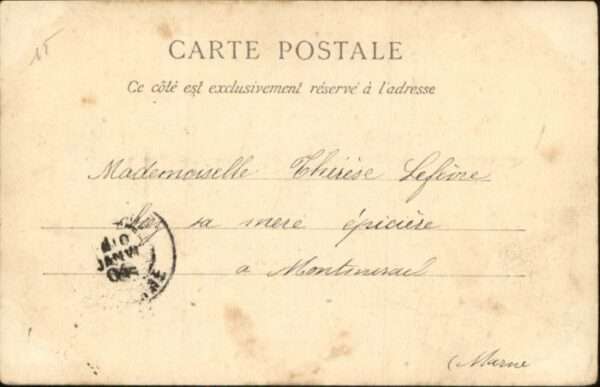 15
CARTE POSTALE
Ce côté est exclusivement réservé à l'adresse
Mademoiselle Thérèse Lefèvre
chez sa mère épicière
a Montmirail
(Marne
10
JANV